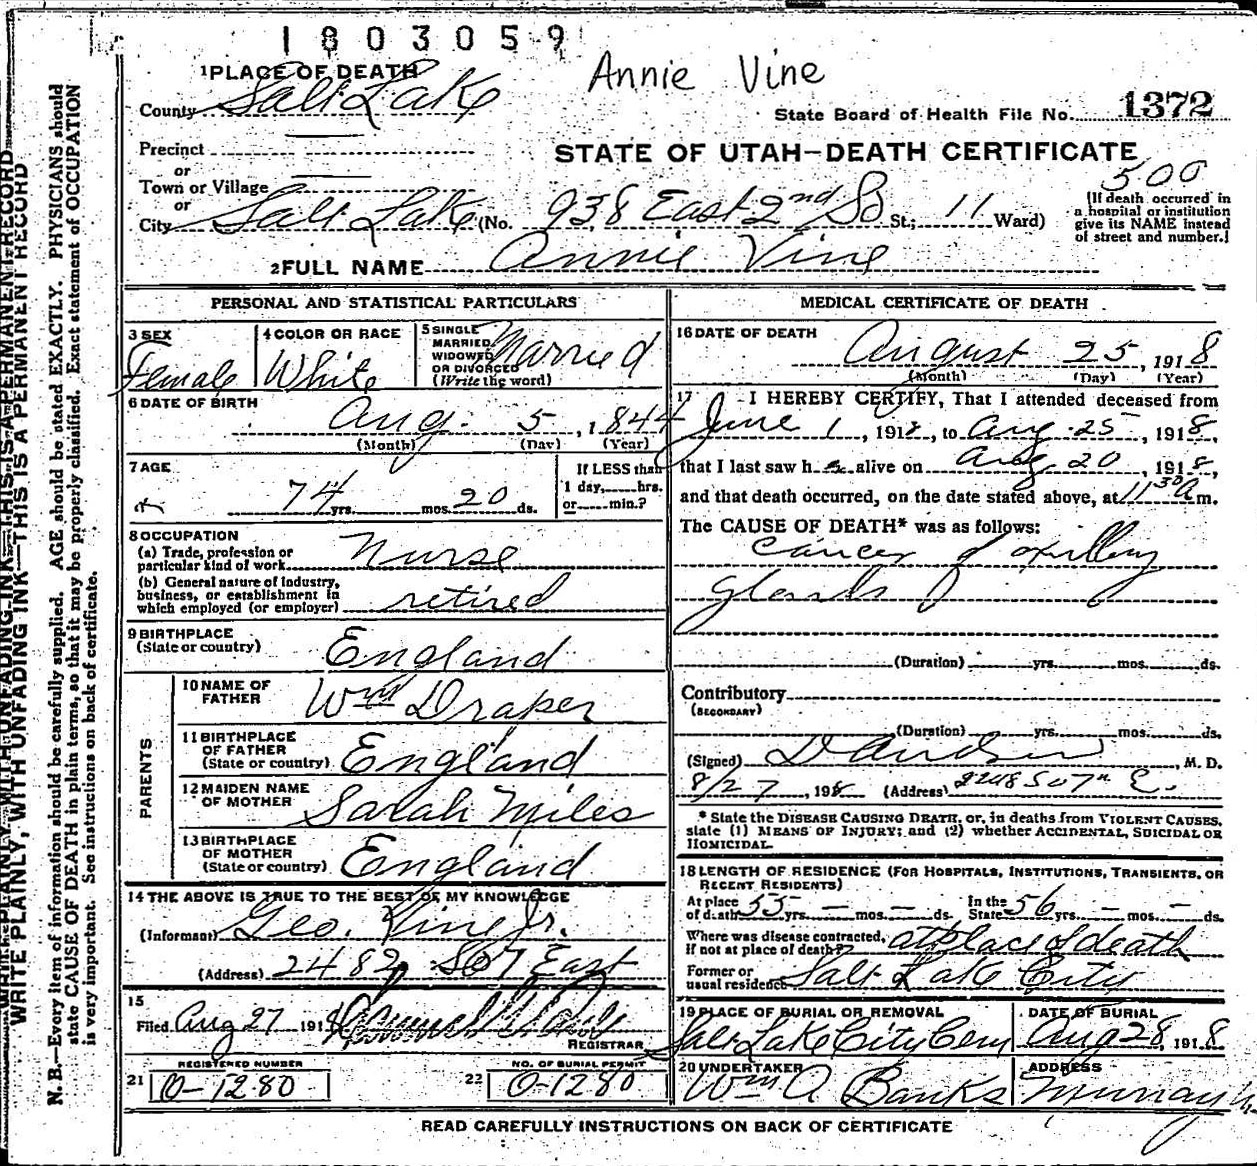 1803059
Annie Vine
1 PLACE OF DEATH
County Salt Lake
State Board of Health File No. 1372
Precinct
or
Town or Village
or
City Salt Lake (No. 938 East 2nd So St.; 11 Ward)
STATE OF UTAH—DEATH CERTIFICATE
500
(If death occurred in
a hospital or institution
give its NAME instead
of street and number.)
2 FULL NAME Annie Vine
PERSONAL AND STATISTICAL PARTICULARS
3 SEX
Female
4 COLOR OR RACE
White
5 SINGLE
MARRIED
WIDOWED
OR DIVORCED
(Write the word)
Married
6 DATE OF BIRTH
Aug. 5, 1844
(Month) (Day) (Year)
7 AGE
74 yrs. mos. 20 ds.
If LESS than
1 day, hrs.
or min.?
8 OCCUPATION
(a) Trade, profession or
particular kind of work Nurse
(b) General nature of industry,
business, or establishment in
which employed (or employer) retired
9 BIRTHPLACE
(State or country) England
PARENTS
10 NAME OF
FATHER Wm Draper
11 BIRTHPLACE
OF FATHER
(State or country) England
12 MAIDEN NAME
OF MOTHER Sarah Miles
13 BIRTHPLACE
OF MOTHER
(State or country) England
14 THE ABOVE IS TRUE TO THE BEST OF MY KNOWLEDGE
(Informant) Geo. Vine Jr.
(Address) 2482 So 7 East
15
Filed Aug 27 1918
REGISTRAR
REGISTERED NUMBER
21 O-1280
NO. OF BURIAL PERMIT
22 O-1280
MEDICAL CERTIFICATE OF DEATH
16 DATE OF DEATH
August 25, 1918
(Month) (Day) (Year)
17 I HEREBY CERTIFY, That I attended deceased from
June 1, 1918, to Aug. 25, 1918,
that I last saw h alive on Aug 20, 1918,
and that death occurred, on the date stated above, at 11 30 a m.
The CAUSE OF DEATH* was as follows:
cancer of axillary
glands
(Duration) yrs. mos. ds.
Contributory
(SECONDARY)
(Duration) yrs. mos. ds.
(Signed) , M. D.
8/27, 1918 (Address) 2248 So 7th E.
* State the DISEASE CAUSING DEATH, or, in deaths from VIOLENT CAUSES,
state (1) MEANS OF INJURY; and (2) whether ACCIDENTAL, SUICIDAL OR
HOMICIDAL.
18 LENGTH OF RESIDENCE (FOR HOSPITALS, INSTITUTIONS, TRANSIENTS, OR
RECENT RESIDENTS)
At place
of death 55 yrs. — mos. — ds.
In the
State 56 yrs. — mos. — ds.
Where was disease contracted,
if not at place of death? at place of death
Former or
usual residence Salt Lake City
19 PLACE OF BURIAL OR REMOVAL
Salt Lake City Cem
DATE OF BURIAL
Aug 28, 1918
20 UNDERTAKER
Wm A Banks
ADDRESS
Murray U.
READ CAREFULLY INSTRUCTIONS ON BACK OF CERTIFICATE
WRITE PLAINLY, WITH UNFADING INK—THIS IS A PERMANENT RECORD
WRITE PLAINLY, WITH UNFADING INK—THIS IS A PERMANENT RECORD
N. B.—Every item of information should be carefully supplied. AGE should be stated EXACTLY. PHYSICIANS should
state CAUSE OF DEATH in plain terms, so that it may be properly classified. Exact statement of OCCUPATION
is very important. See instructions on back of certificate.